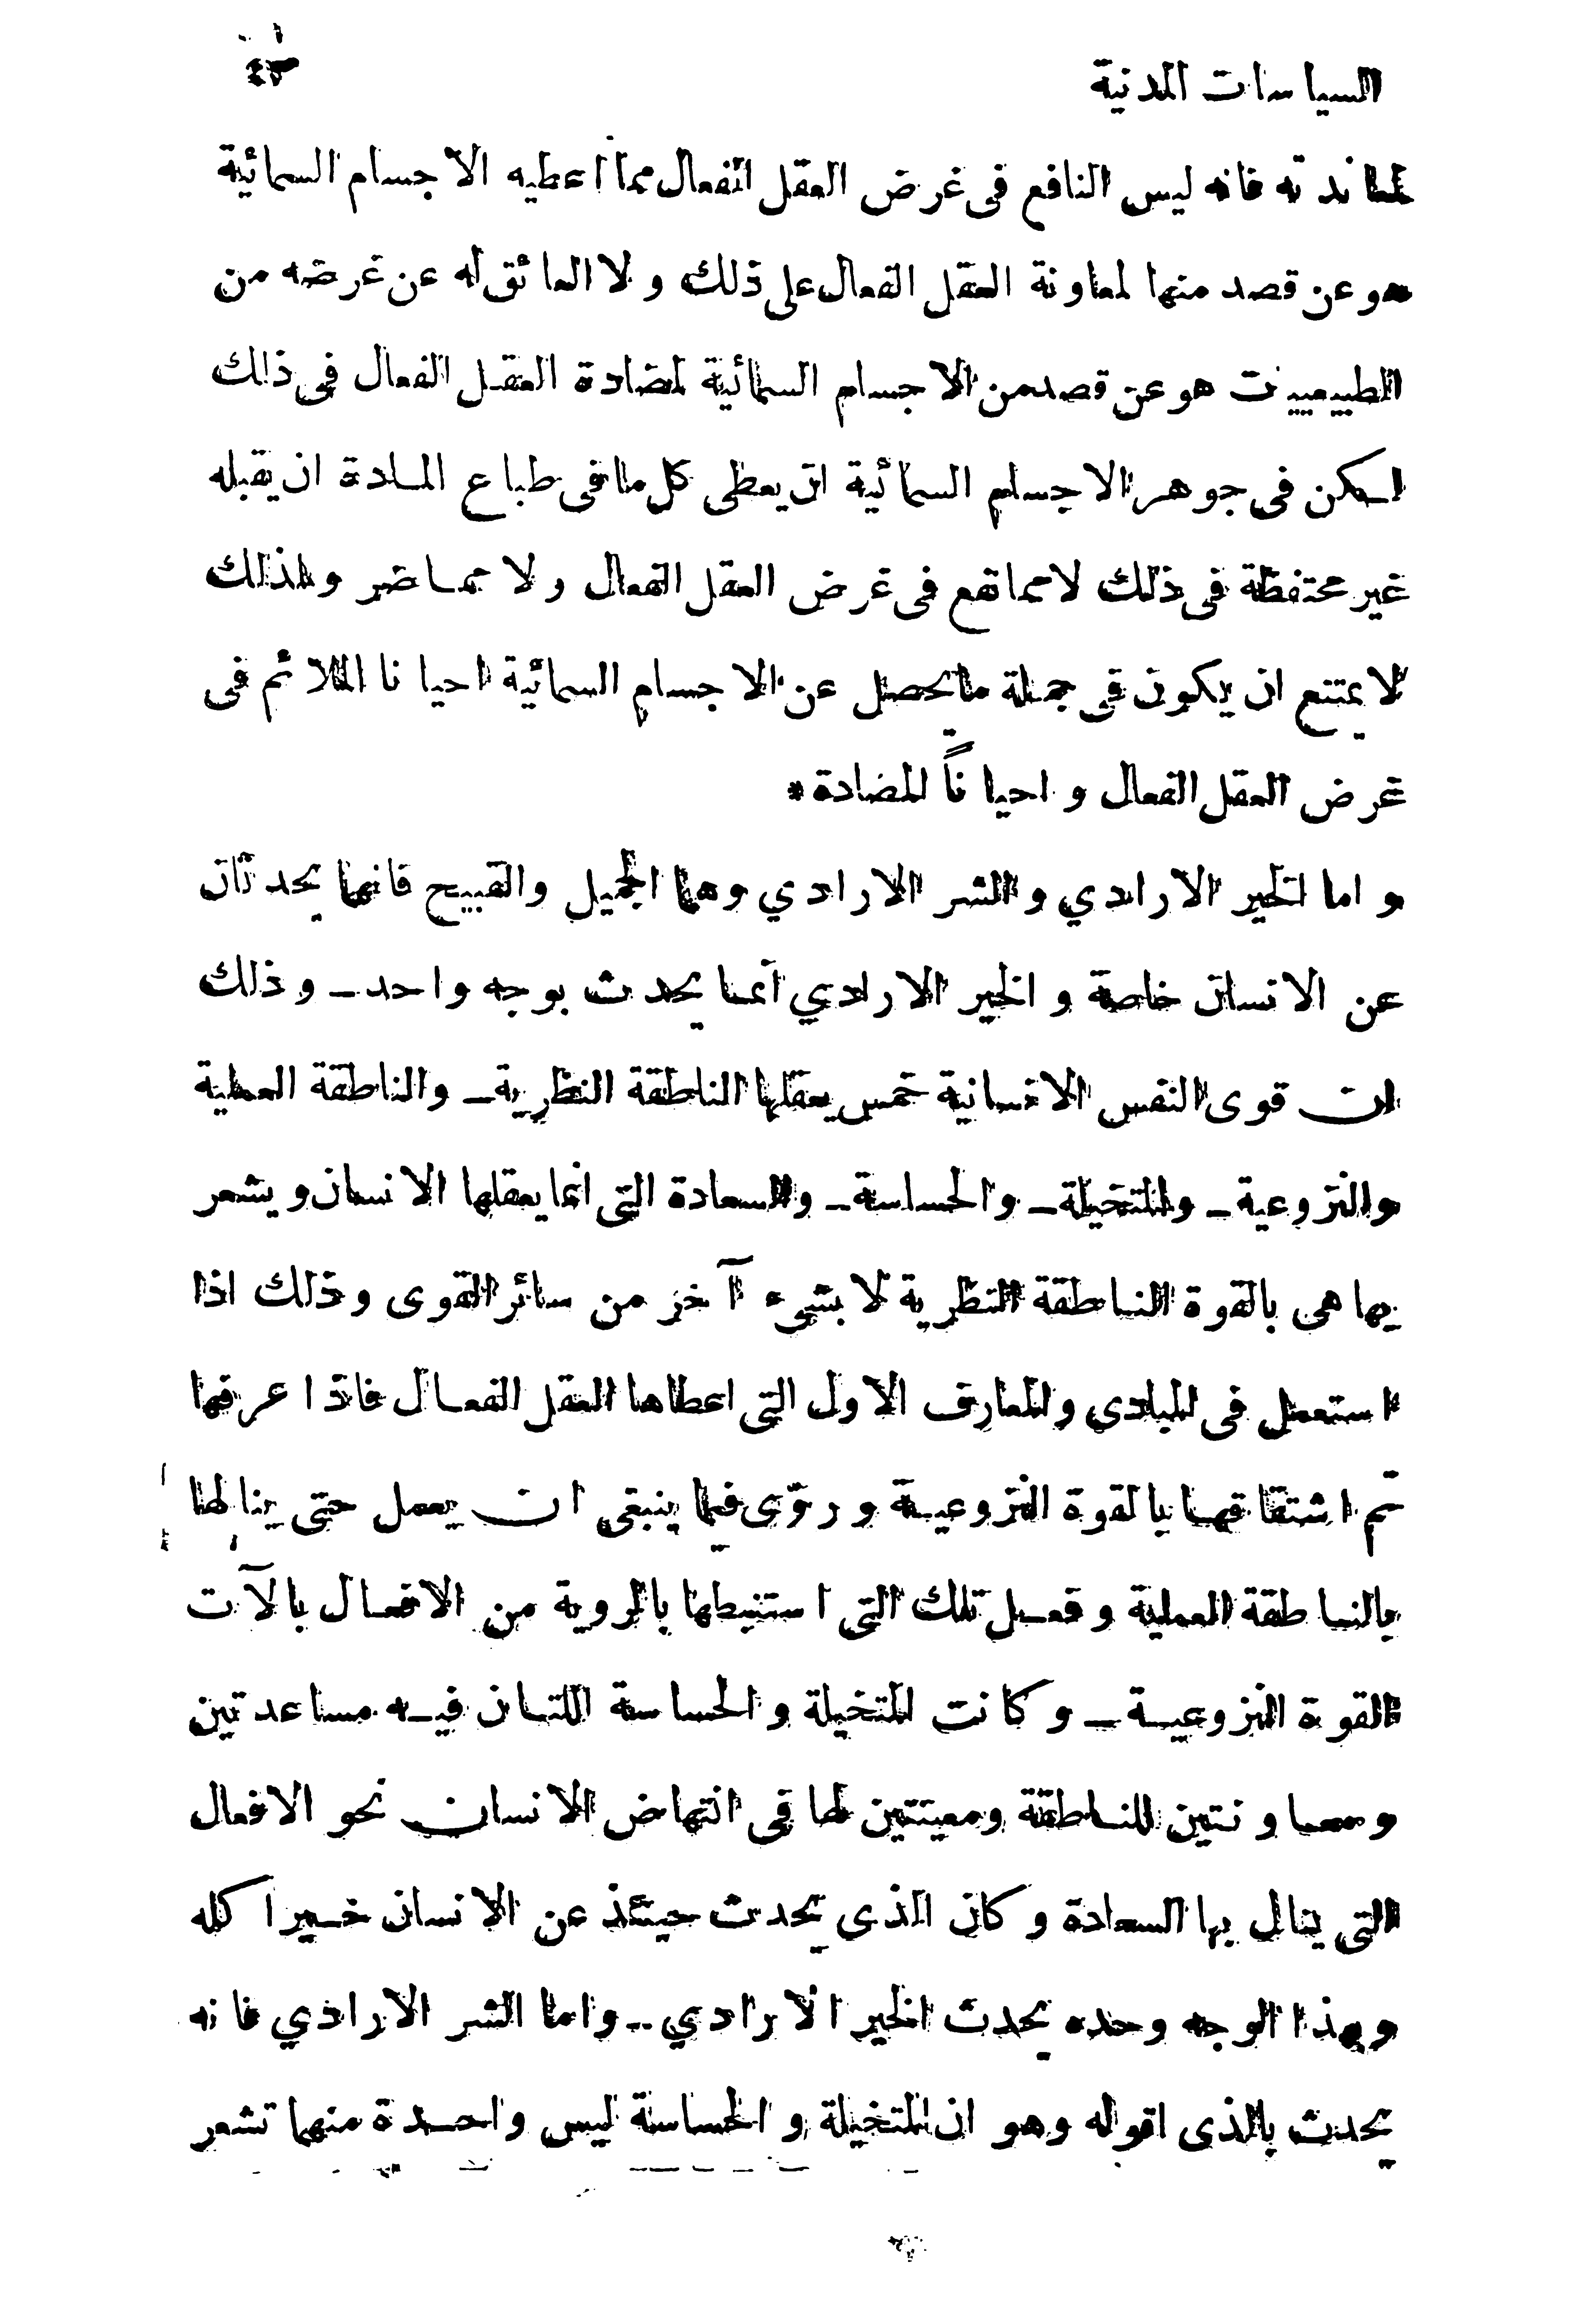 السياسات المدنية
لمعاندته فانه ليس النافع فى غرض العقل الفعال مما اعطيه الاجسام السمائية
هو عن قصد منها لمعاونة العقل الفعال على ذلك ولا العائق له عن غرضه من
الطبيعيين هو عن قصد من الاجسام السمائية لمضادة العقل الفعال فى ذلك
لكن فى جوهر الاجسام السمائية ان يعطى كل ما فى طباع المادة ان يقبله
غير محتفظة فى ذلك لا بما نفع فى غرض العقل الفعال ولا بما ضر ولذلك
لا يمتنع ان يكون فى جملة ما يحصل عن الاجسام السمائية احيانا الملائم فى
غرض العقل الفعال واحياناً المضادة *
واما الخير الارادي والشر الارادي وهما الجميل والقبيح فانهما يحدثان
عن الانسان خاصة والخير الارادي انما يحدث بوجه واحد ـ وذلك
ان قوى النفس الانسانية خمس يعقلها الناطقة النظرية ـ والناطقة العملية
والنزوعية ـ والمتخيلة ـ والحساسة ـ والسعادة التى انما يعقلها الانسان ويشعر
بها هى بالقوة الناطقة النظرية لا بشىء آخر من سائر القوى وذلك اذا
استعمل فى المبادى والمعارف الاول التى اعطاها العقل الفعال فاذا عرفها
ثم اشتقاقها بالقوة النزوعية وروّى فيما ينبغى ان يعمل حتى ينالها
بالناطقة العملية وفعل تلك التى استنبطها بالروية من الافعال بالآت
القوة النزوعية ـ وكانت المتخيلة والحساسة اللتان فيه مساعدتين
ومعاونتين للناطقة ومعينتين لها فى انتهاض الانسان نحو الافعال
التى ينال بها السعادة وكان الذى يحدث حينئذ عن الانسان خيرا كله
وبهذا الوجه وحده يحدث الخير الارادي ـ واما الشر الارادي فانه
يحدث بالذى اقوله وهو ان المتخيلة والحساسة ليس واحدة منهما تشعر